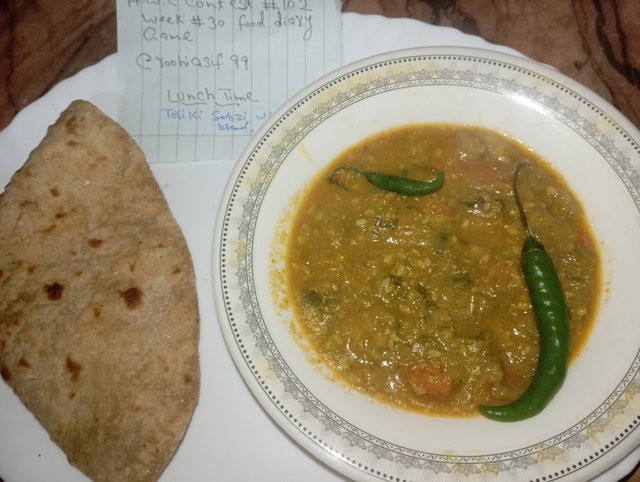 H.W.C Contest #102
Week #30 food diary
Game
@roohiasif99
Lunch Time
Tori Ki Sabzi w
bread